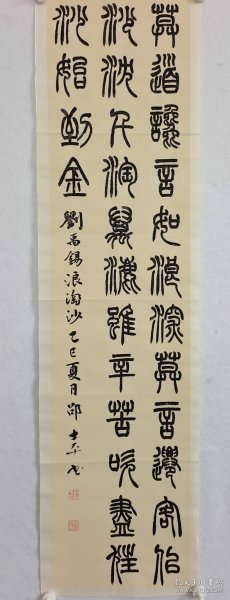 莫道讒言如浪深莫言遷客似
沙沈千淘萬漉雖辛苦吹盡狂
沙始到金
劉禹錫浪淘沙 乙巳夏月邵士